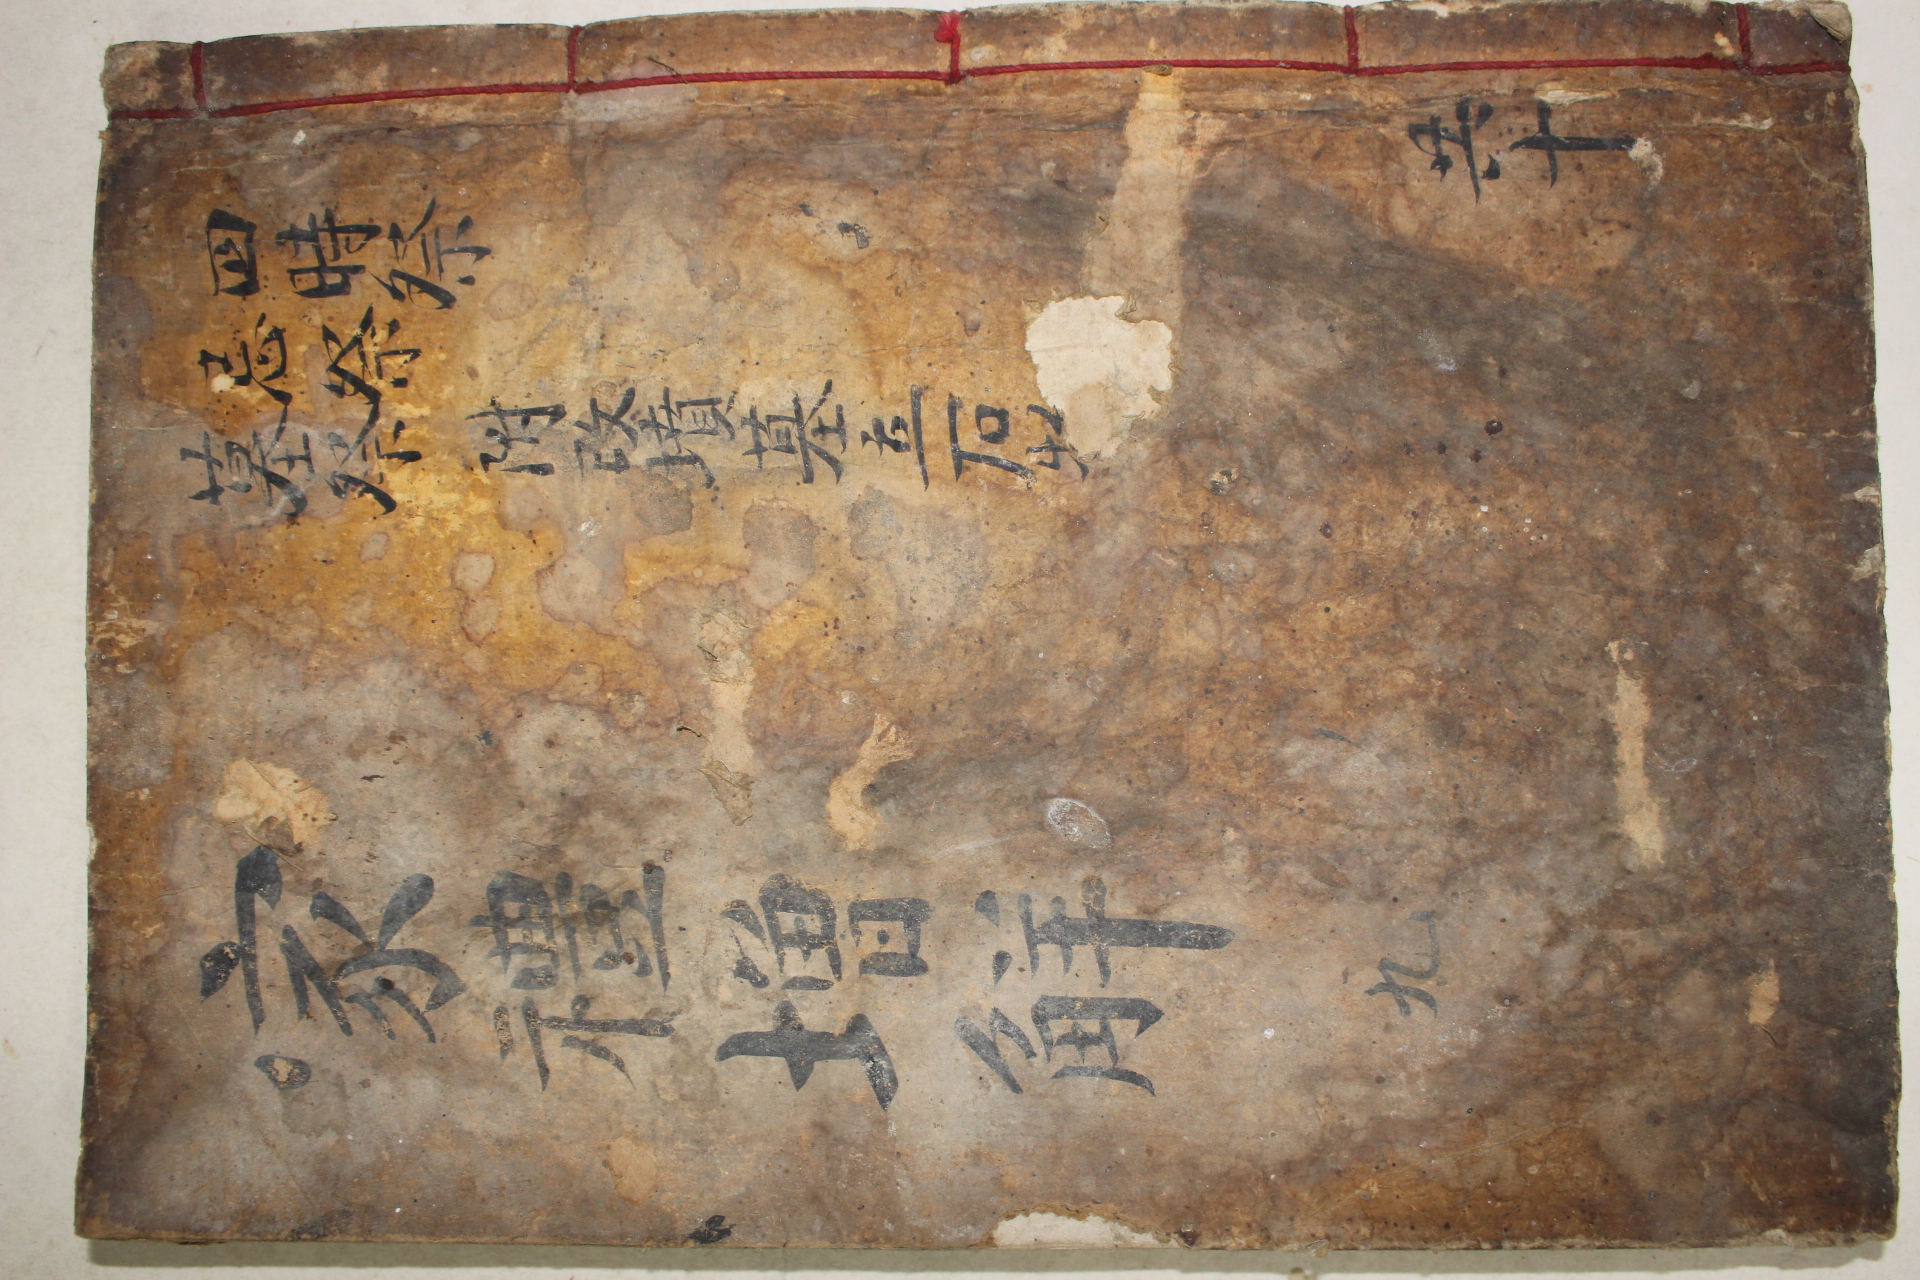 四時祭
忌祭
墓祭 附改墳墓立石物
家禮增解 九
共十